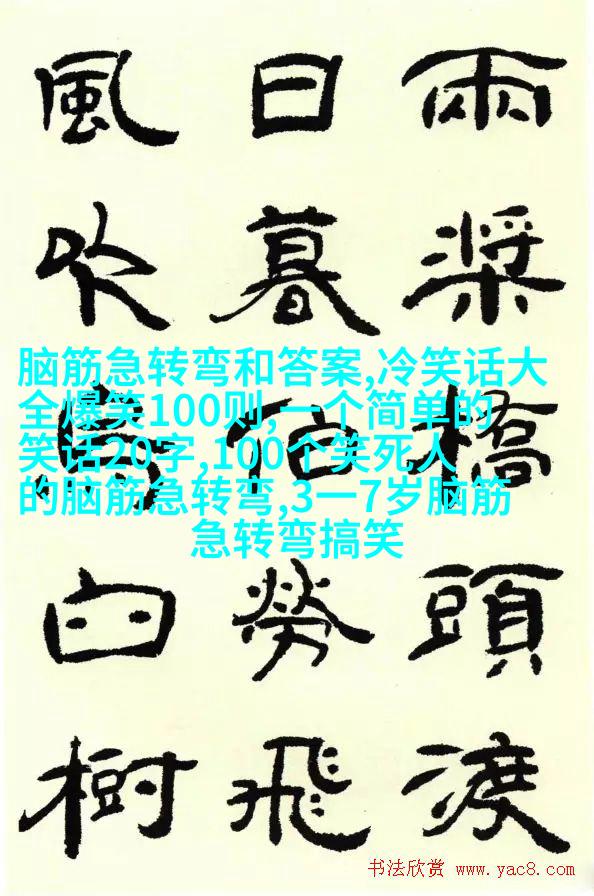 兩槳橋頭渡
日暮伯勞飛
風吹烏臼樹
脑筋急转弯和答案,冷笑话大
全爆笑100则,一个简单的
笑话20字,100个笑死人
的脑筋急转弯,3一7岁脑筋
急转弯搞笑
书法欣赏 www.yac8.com